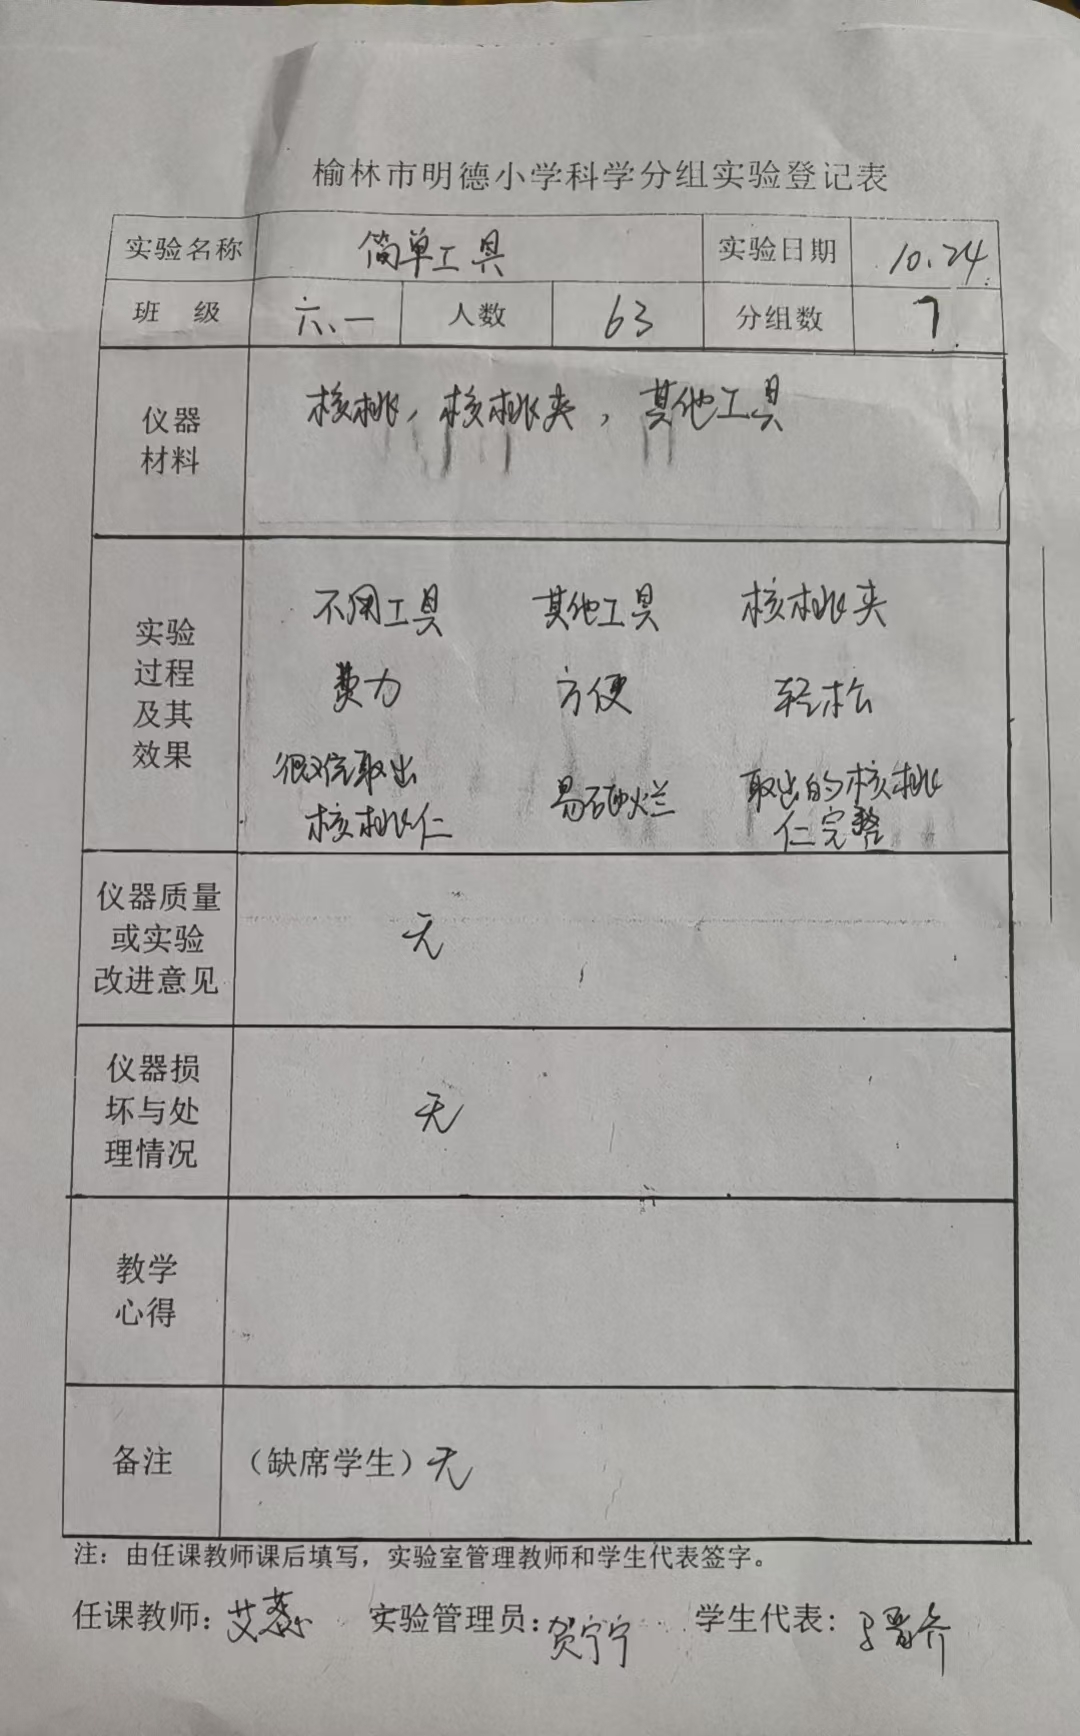 榆林市明德小学科学分组实验登记表
实验名称 简单工具 实验日期 10.24
班 级 六、一 人数 63 分组数 7
仪器 核桃，核桃夹，其他工具
材料
实验 不用工具 其他工具 核桃夹
过程 费力 方便 轻松
及其 很难取出 易砸烂 取出的核桃
效果 核桃仁 仁完整
仪器质量
或实验 无
改进意见
仪器损
坏与处 无
理情况
教学
心得
备注 （缺席学生）无
注：由任课教师课后填写，实验室管理教师和学生代表签字。
任课教师：艾 实验管理员：贺宁宁 学生代表：